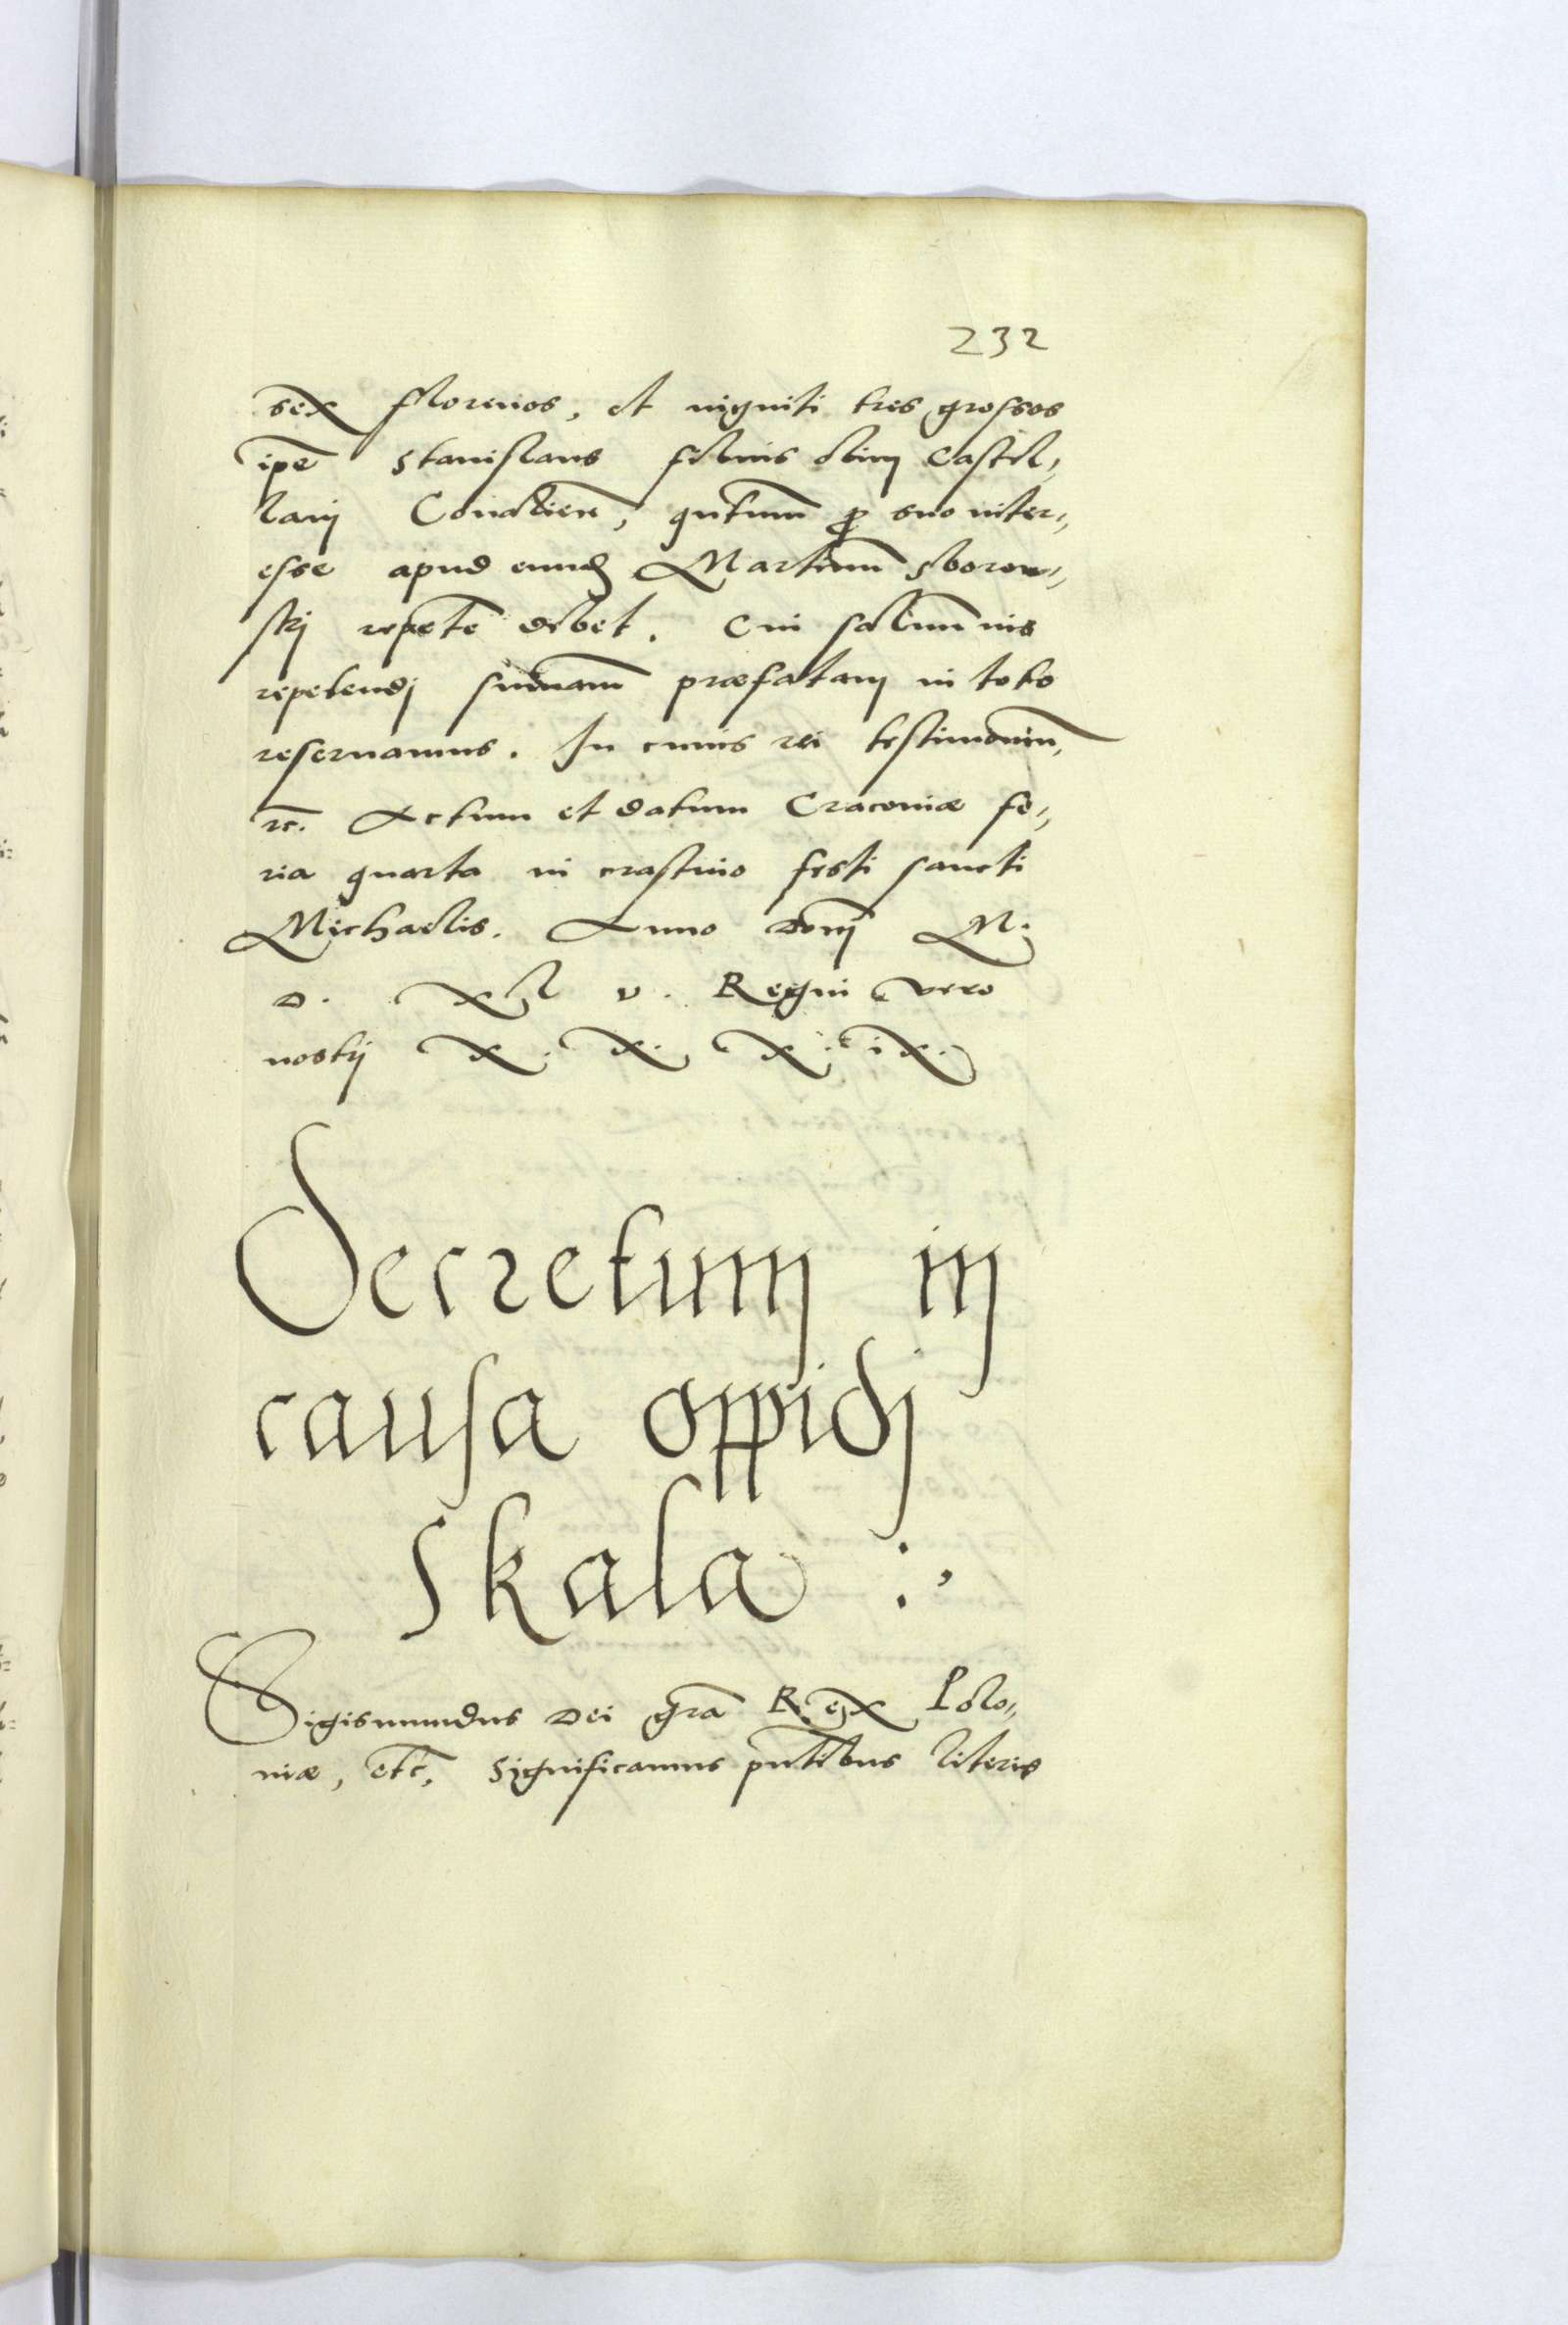 232
sex florenos, et viginti tres grossos
ip̄e Stanislaus filius olim Castel,,
lanj qūtum ꝑ suo inter,,
esse apud eundꝫ Martinum Sborow,,
skj repete debet. Cui saluum ius
repetendj sum̄am præfatam in toto
reseruamus. In cuius rei testimoniū,
ec̄. Actum et datum Cracoviæ fe,,
ria quarta in crastino festi sancti
Michaelis. Anno Domj M.
D. XL V. Regni vero
nostrj X. X. X. iX.
Decretum in
causa oppidj
Skala :,
Sigismundus Dei grā Rex Polo,,
niæ, etc̄, Significamus pn̄tibus literis